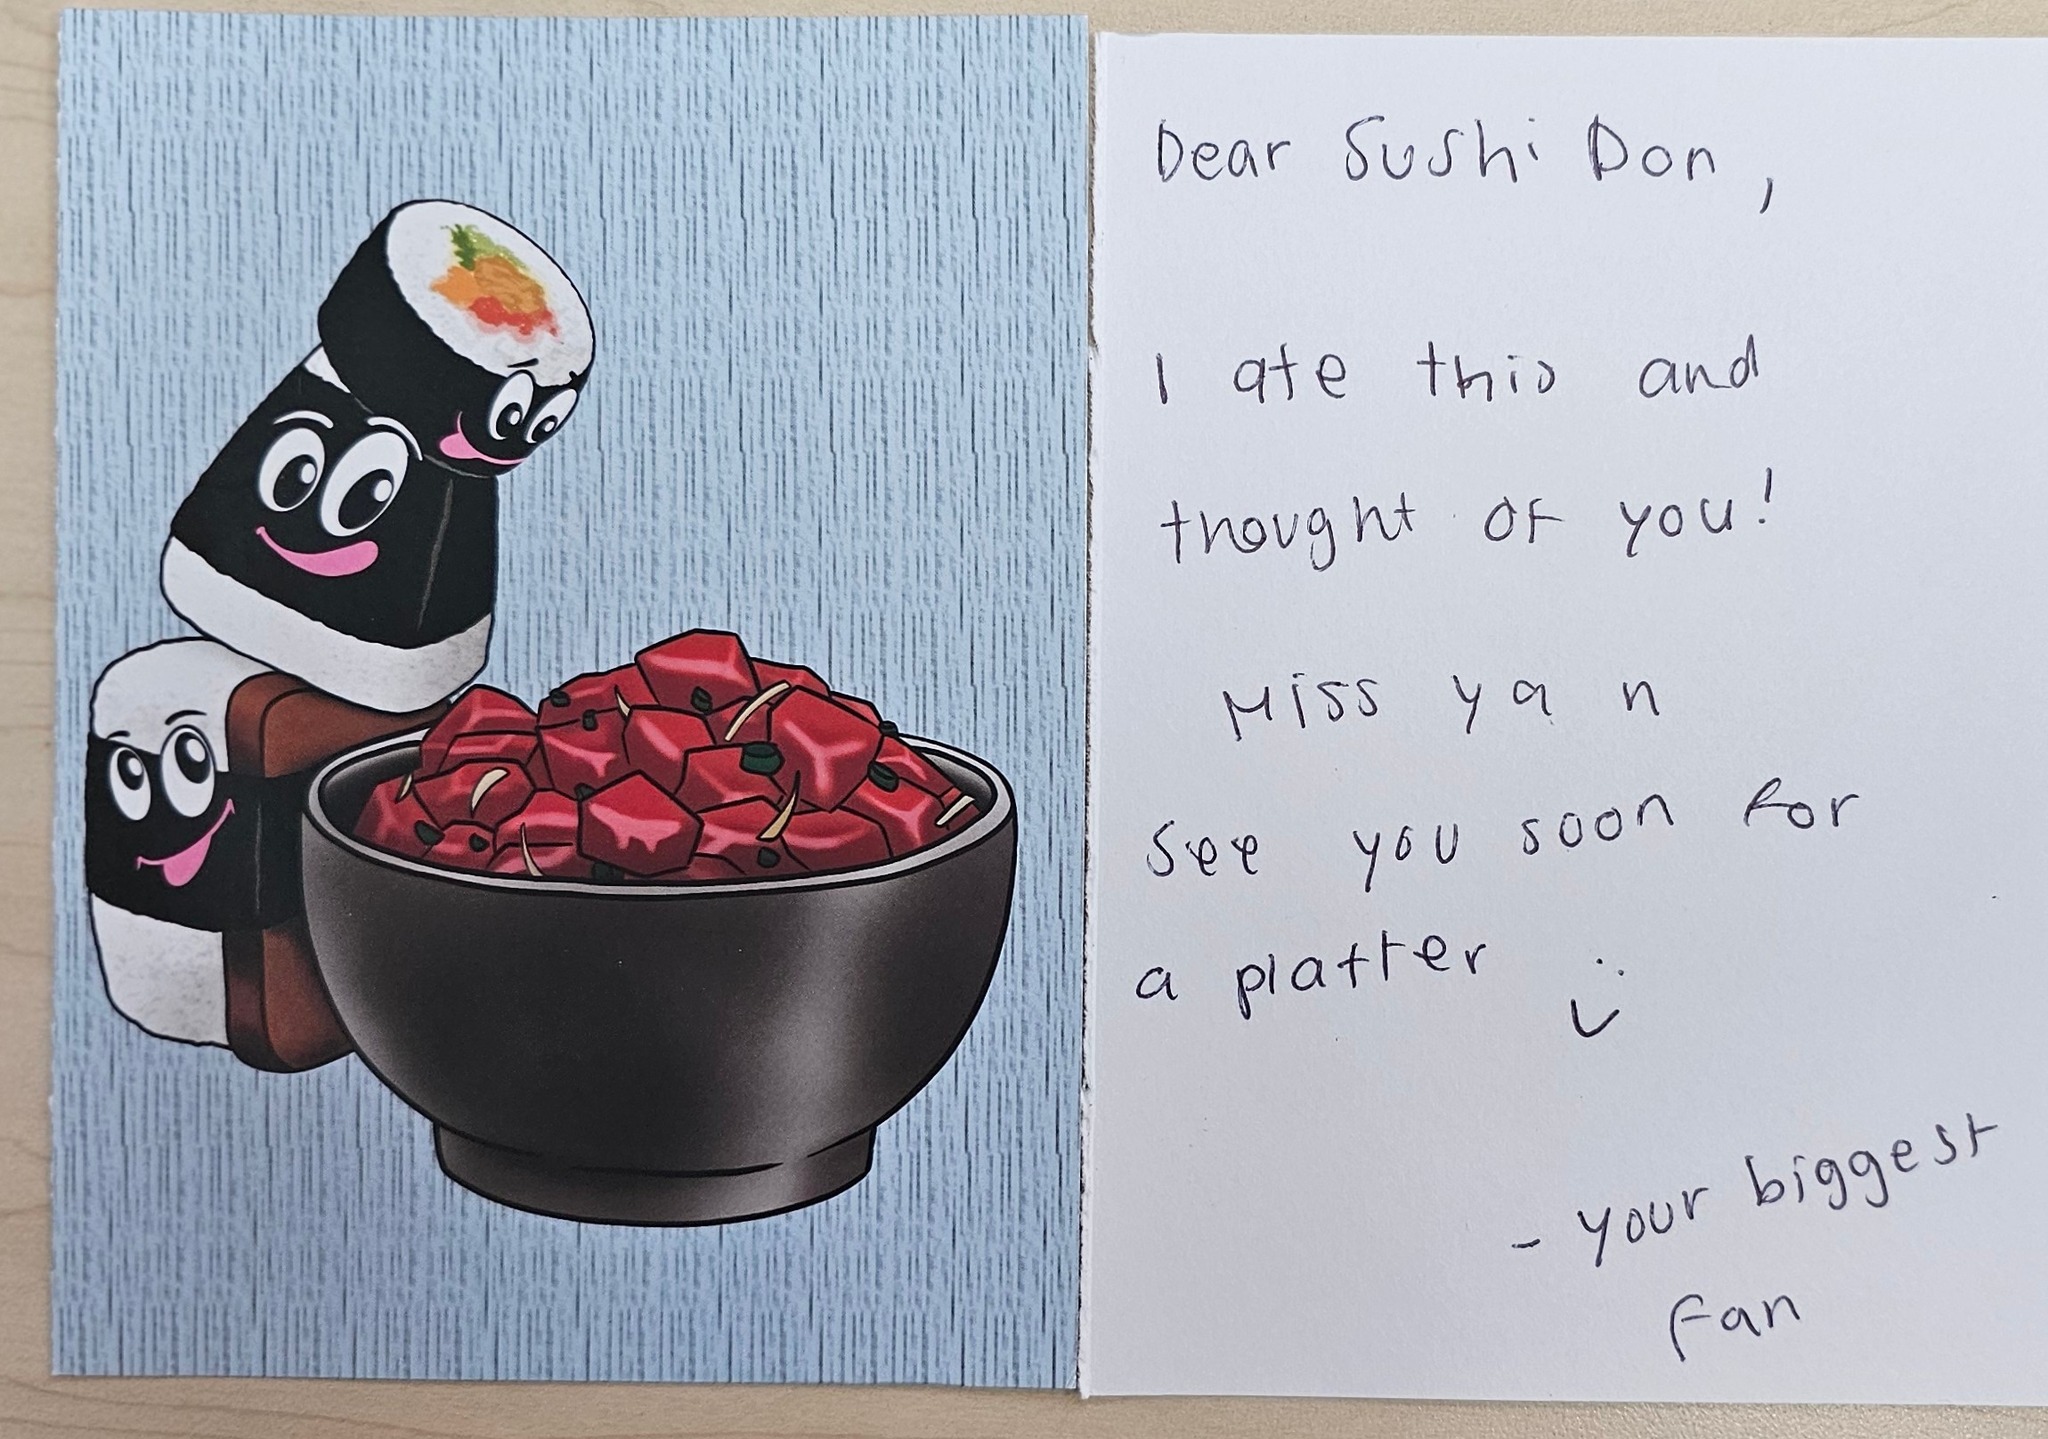 Dear Sushi Don,
I ate this and
thought of you!
Miss ya n
see you soon for
a platter :)
- your biggest
fan